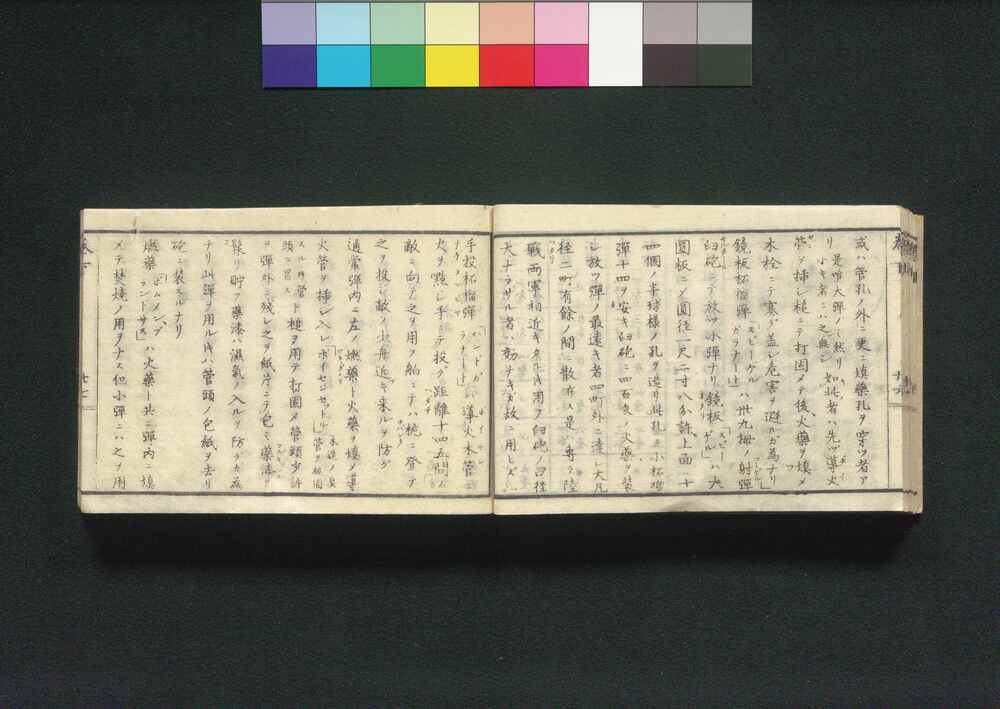 或ハ管孔ノ外ニ更ニ填藥孔ヲ穿ツ者ア
リ 是唯大彈ノミ然リ小キ者ニハ之無シ 如此者ハ先ツ導火
管ヲ挿シ槌ニテ打固メテ後火藥ヲ填メ
木栓ニテ塞グ蓋シ危害ヲ避ルガ為ナリ
鏡板杯榴彈「スピーゲルガラナート」ハ卅九拇ノ射彈
臼砲ニテ放ツ小彈ナリ鏡板ハ大
圓板ニノ圓径一尺二寸八分許上面ニ十
四個ノ半球様ノ孔ヲ造リ毎孔ニ小杯榴
彈十四ヲ安キ臼砲ニ四百目ノ火藥ヲ装
シ放ツ彈ノ最遠キ者四町外ニ達シ大凡
径二町有餘ノ間ニ散布ス是レ專ラ陸
戰両軍相近キタル時用ヲ臼砲ノ口径
大ナラサル者ハ効ナキガ故ニ用ヒズ
手投杯榴彈「ハンドガラナート」導火木管ニ
火ヲ點シ手ニテ投グ距離十四五間
敵ニ向テ之ヲ用フ舶ニテハ桅ニ登テ
之ヲ投シ敵ノ小舟近キ来ルヲ防グ
通常彈内ニ左ノ燃藥ト火藥ヲ填メ導
火管ヲ挿シ入レ「ボイセンセットル」管ヲ打固
スル時管頭ニ置ス木造ノ具ト槌ヲ用テ打固メ管頭少許
ヲ彈外ニ残シ之ヲ紙片ニテ包ミ藥漆
髹リ貯フ藥漆ハ濕氣ノ入ルヲ防グガ為
ナリ此彈ヲ用ル時ハ管頭ノ包紙ヲ去リ
砲ニ装スルナリ
燃藥「ボムブランドサス」ハ火藥ト共ニ彈内ニ填
メテ焚燒ノ用ヲナス但小彈ニハ之ヲ用